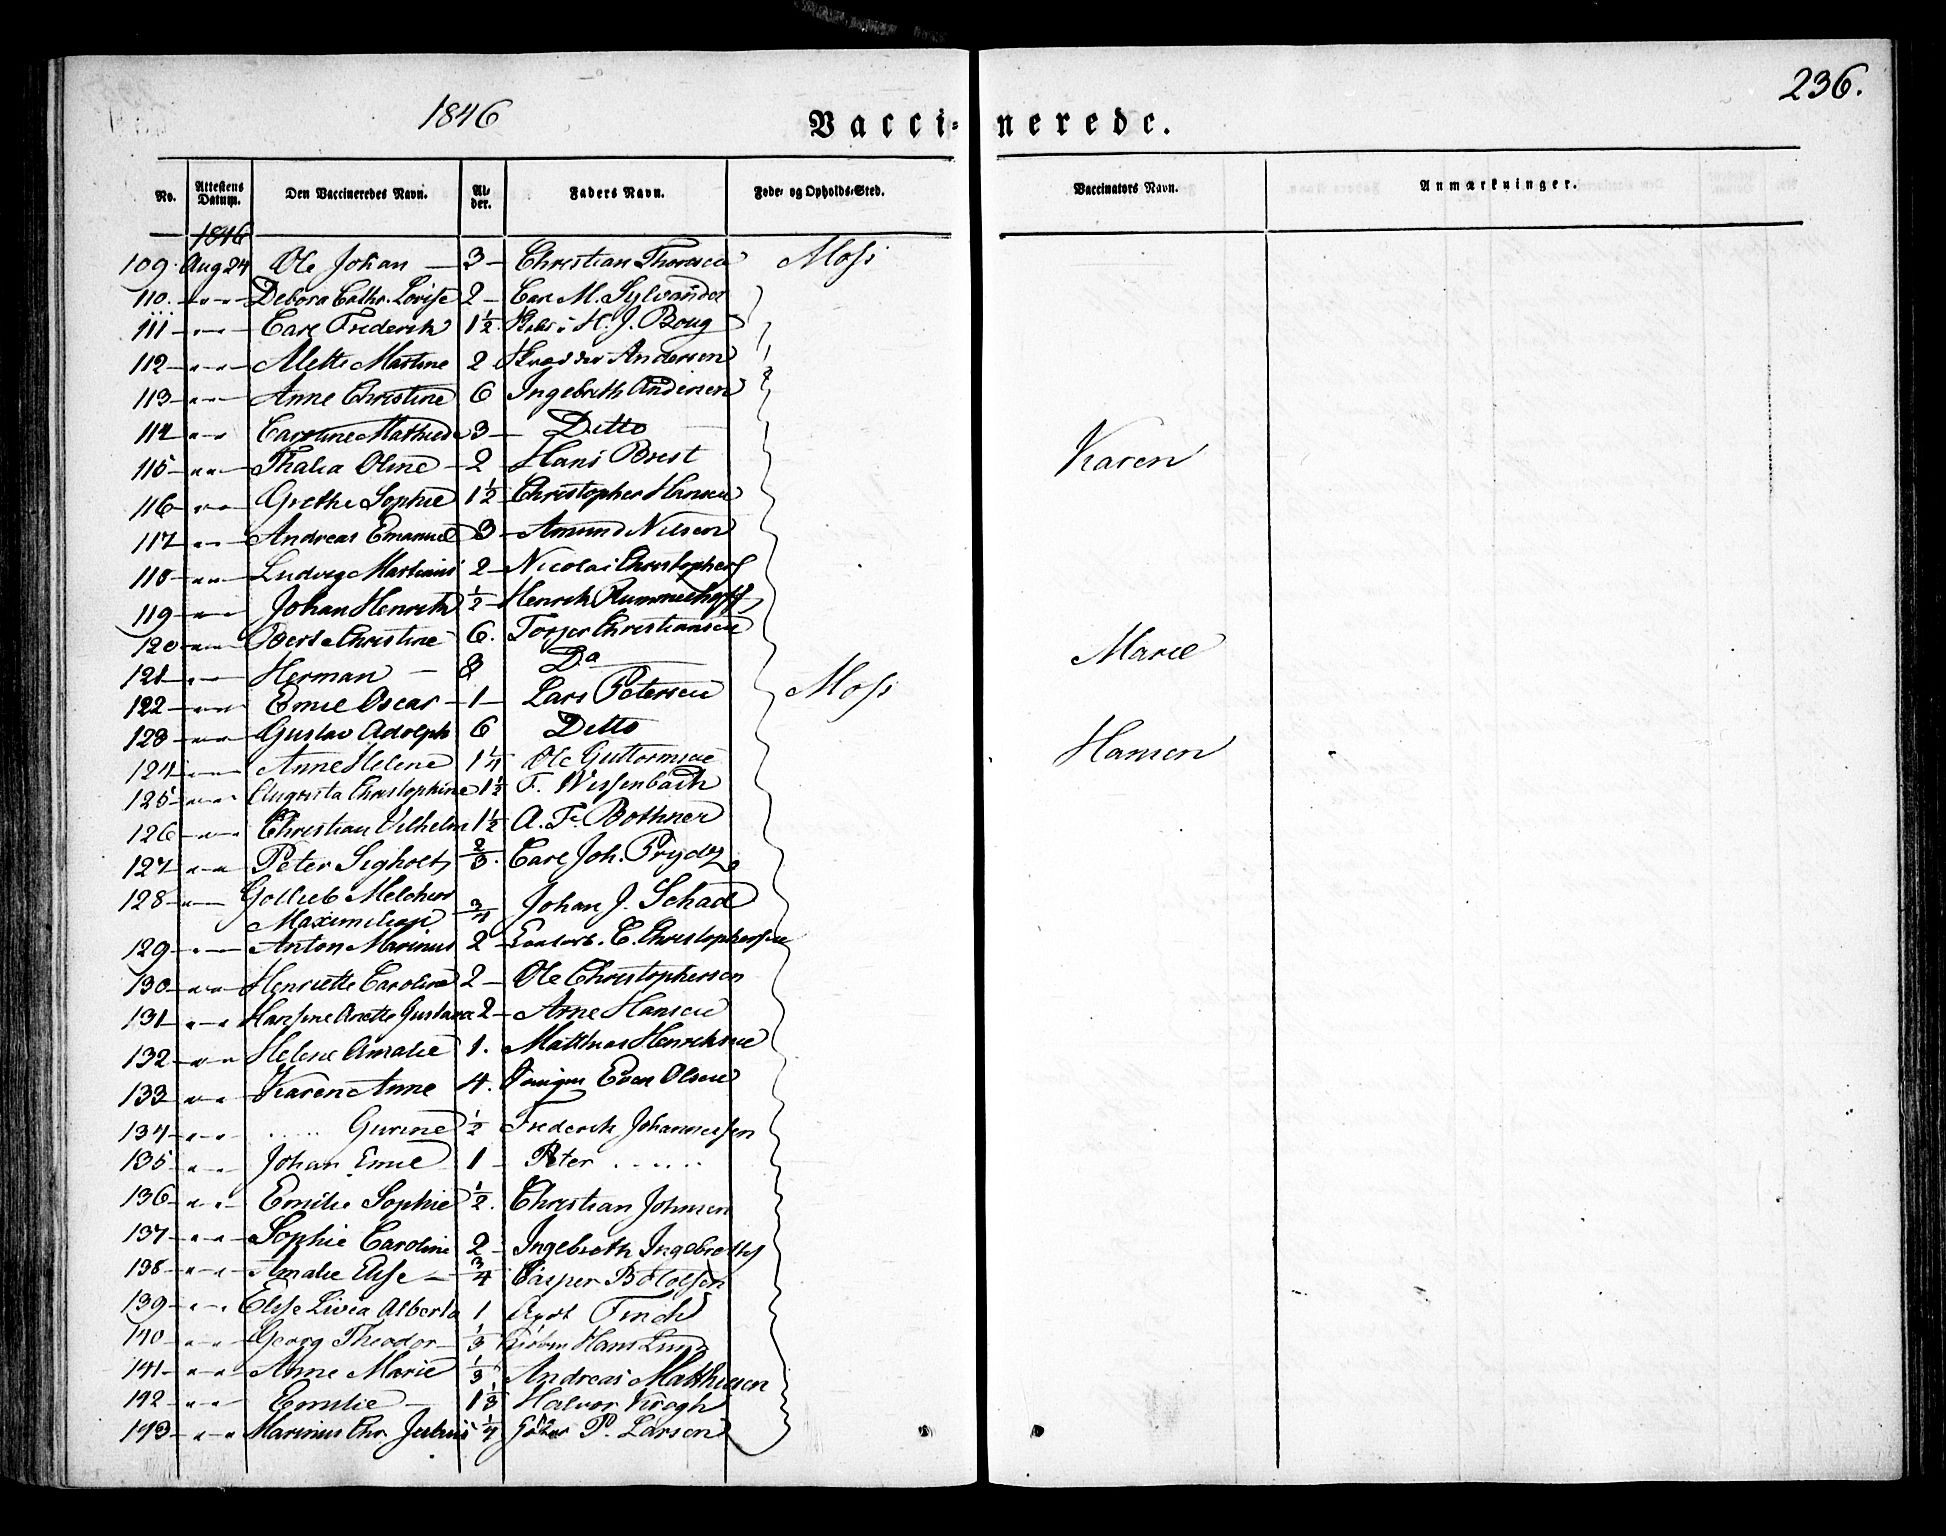 236.
1846
Vacci- nerede.
No. Attestens Datum. Den Vaccineredes Navn. Al- der. Faders Navn. Føde- og Opholds-Sted. Vaccinators Navn. Anmærkninger.
1846
109. Aug 24 Ole Johan — 3 — Christian Thoresen Moss
110. " " Debora Cathr. Lovise 2 — Carl M. Sylvander
111 " " Carl Frederik 1½ H. J. Boug
112 " " Mette Martine 2 Andersen
113 " " Anne Christine 6 Ingebreth Andersen
114 " " Caroline Mathilde 3 — Ditto
115 " " Thalia Oline — 2 — Hans Brest Karen
116 " " Grethe Sophie 1½ Christopher Hansen
117 " " Andreas Emanuel 3 — Amund Nilsen
118 " " Ludvig Martinius 2 — Nicolai Christophers
119 " " Johan Henrich ½ — Henrich Rummelhoff
120 " " Berte Christine 6. Torger Christiansen Marie
121 " " Herman — 3 Do
122 " " Emil Oscar — 1 — Lars Petersen Moss
123 " " Gustav Adolph 6 Ditto
124 " " Anne Helene 1¼ Ole Guttormsen Hansen
125 " " Augusta Christophine 1½ F. Wissenbach
126 " " Christian Vilhelm 1½ A. F. Bothner
127 " " Peter Sigholt ⅔. Carl Joh. Prydz
128 " Gotlieb Melchior
Maximilian ¾ Johan J. Schad
129 " " Anton Marinus 2 — C. Christophersen
130 " " Henriette Caroline 2 — Ole Christophersen
131 " " Hansine Anette Gustava 2 — Arne Hansen
132 " " Helene Amalie 1. Matthias Henriksen
133 " " Karen Anne 4. Even Olsen
134 " " ..... Gurine ½ Frederik Johannessen
135 " " Johan Emil 1 — Peter ......
136 " " Emilie Sophie ½. Christian Johnsen
137 " " Sophie Caroline 2 — Ingebreth Ingebreths
138 " " Amalie Else — ¾ Casper Bololfsen
139 " " Else Livia Alberta 1 Finch
140 " " Georg Theodor — ⅓ Hans Lund
141 " " Anne Marie ⅓ Andreas Matthiesen
142 " " Emilie — 1⅓ Halvor Krogh
143 " " Marinus Chr. Julius ¼ P. Larsen